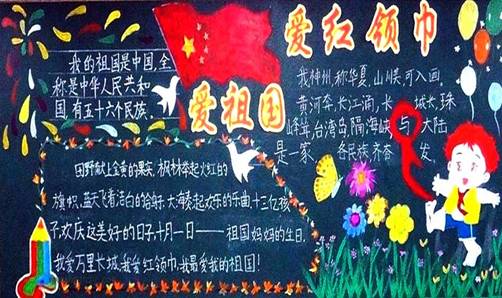 爱红领巾
爱祖国
我的祖国是中国,全
称是中华人民共和
国,有五十六个民族。
我神州,称华夏,山川美,可入画。
黄河奔,长江涌,长 城长,珠
峰耸,台湾岛,隔海峡 与 大陆
是一家 各民族,齐奋 发。
田野献上金黄的果实,枫林举起火红的
旗帜,蓝天飞着洁白的鸽哨,大海奏起欢乐的乐曲,十三亿孩
子,欢庆这美好的日子,十月一日——祖国妈妈的生日。
我爱万里长城,我爱红领巾,我最爱我的祖国!